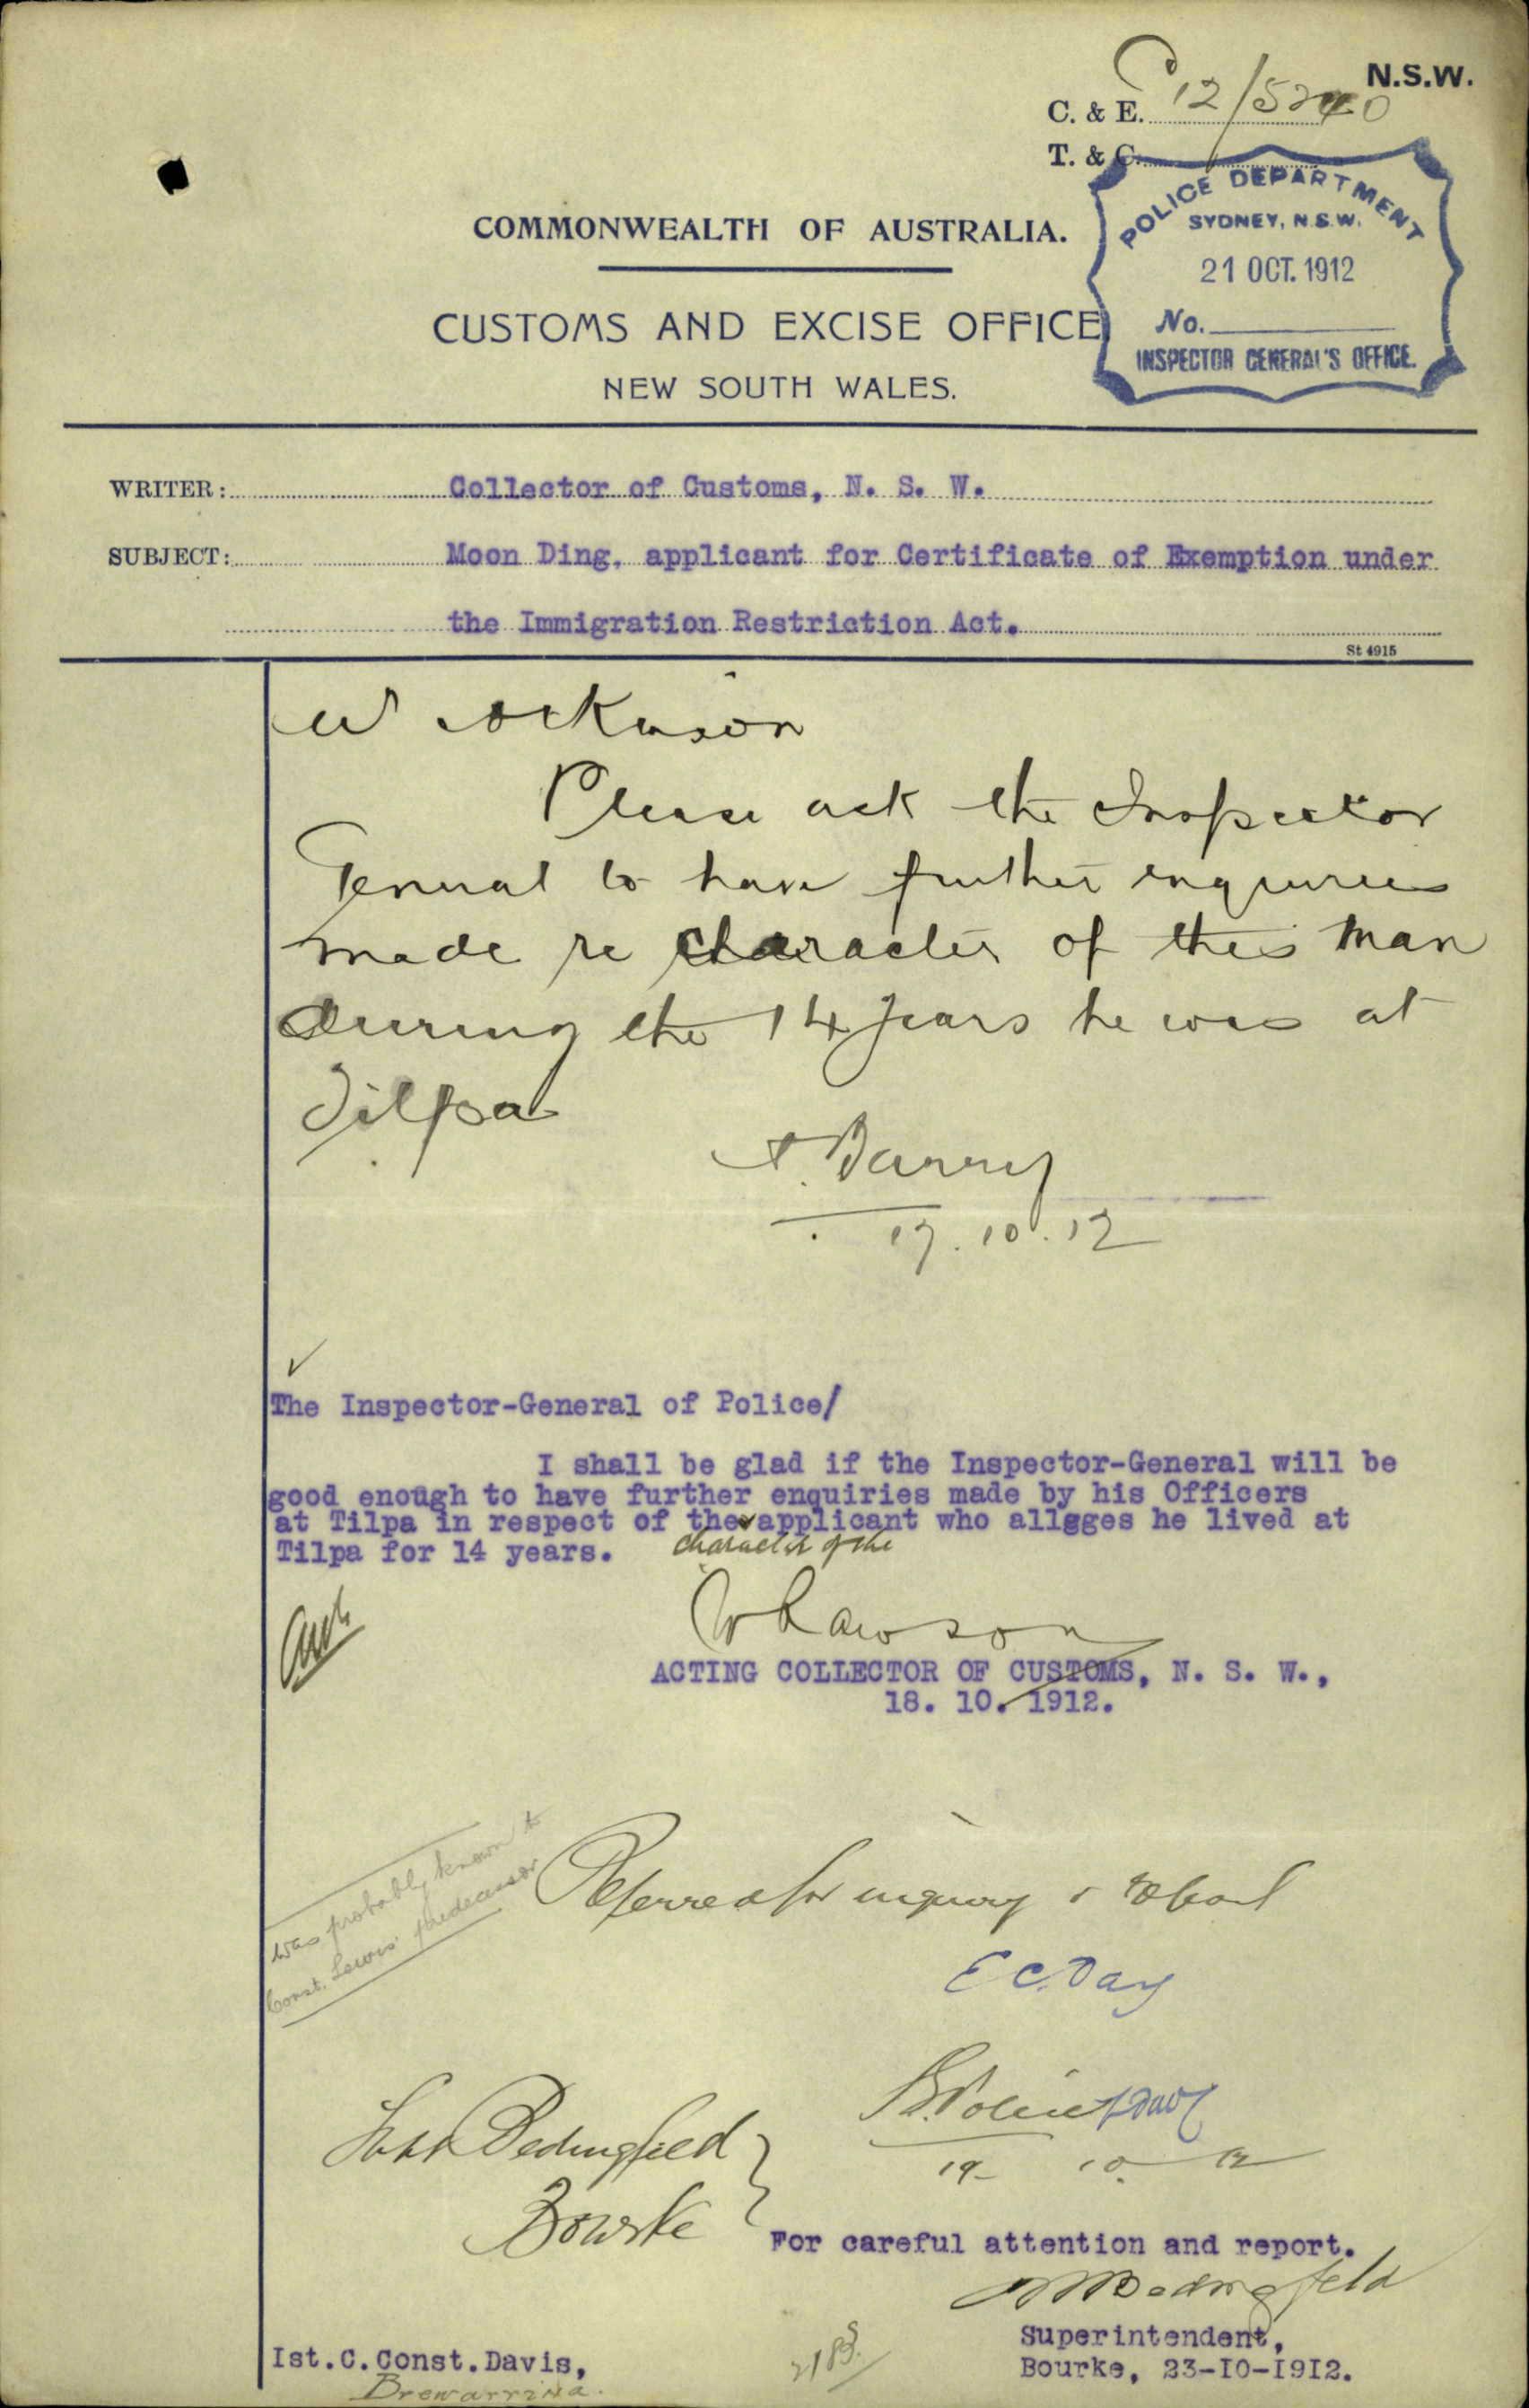 N.S.W.
C. & E. 12/5240
T. & C.
POLICE DEPARTMENT
SYDNEY, N.S.W.
21 OCT. 1912
No.
INSPECTOR GENERAL'S OFFICE.
COMMONWEALTH OF AUSTRALIA.
CUSTOMS AND EXCISE OFFICE
NEW SOUTH WALES.
WRITER: Collector of Customs, N. S. W.
SUBJECT: Moon Ding, applicant for Certificate of Exemption under
the Immigration Restriction Act.
St 4915
Please ask the Inspector
General to have further enquiries
made re character of this man
during the 14 years he was at
Tilpa
A. Barry
17.10.12
The Inspector-General of Police/
I shall be glad if the Inspector-General will be
good enough to have further enquiries made by his Officers
at Tilpa in respect of the applicant who allgges he lived at
character of the
Tilpa for 14 years.
W Lawson
ACTING COLLECTOR OF CUSTOMS, N. S. W.,
18. 10. 1912.
was probably known to
Const. Lewis' predecessor
Referred for inquiry & report
E C. Day
19 10 12
Supt Bedingfeld
Bourke
For careful attention and report.
Bedingfeld
Superintendent,
Bourke, 23-IO-I9I2.
Ist.C.Const.Davis,
Brewarrina.